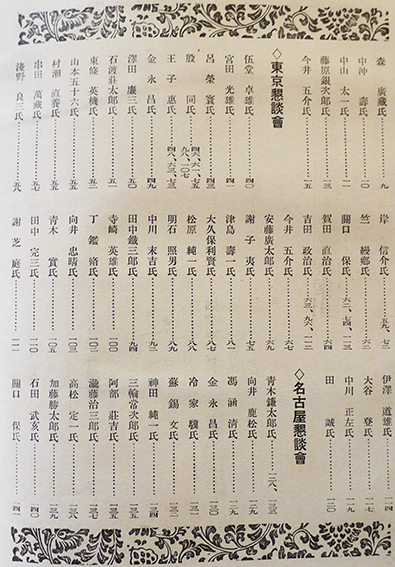 森 廣藏氏
中沖 壽氏
中山 太一氏
藤原銀次郎氏
今井 五介氏
◇東京懇談會
伍堂 卓雄氏………四〇
宮田 光雄氏
呂 榮寰氏………四三
殷 同氏
王 子惠氏………四八、六三、七三
金 永昌氏………四九
澤田 廉三氏………五〇
石渡莊太郎氏………五一
東條 英機氏………五二
山本五十六氏………五五
村瀨 直養氏………五五
串田 萬藏氏………五七
淺野 良三氏………五八
岸 信介氏
竺 縵卿氏
賀田 直治氏
關口 保氏
吉田 政治氏
今井 五介氏
安藤廣太郎氏
謝 子夷氏………七五
津島 壽一氏………八一
大久保利賢氏………八七
松原 純一氏………八九
明石 照男氏………八九
中川 末吉氏………九二
田中鐵三郎氏………九四
寺崎 英雄氏
丁 鑑脩氏………一〇二
向井 忠晴氏………一〇三
靑木 實氏………一〇五
田中 完三氏………一一〇
謝 芝庭氏………一一一
伊澤 道雄氏………一一四
大谷 登氏………一一七
中川 正左氏………一一九
田 誠氏………一二〇
◇名古屋懇談會
靑木鎌太郎氏………一二八、一三三
向井 鹿松氏………一二九
馮 涵淸氏………一二九
金 永昌氏………一三〇
冷 家驥氏………一三一
蘇 錫文氏………一三二
神田 純一氏………一三三
三輪常次郎氏………一三五
阿部 莊吉氏………一三五
瀧藤治三郎氏………一三七
高松 定一氏………一三八
加藤勝太郎氏………一三九
石田 武亥氏………一四〇
關口 保氏………一四〇